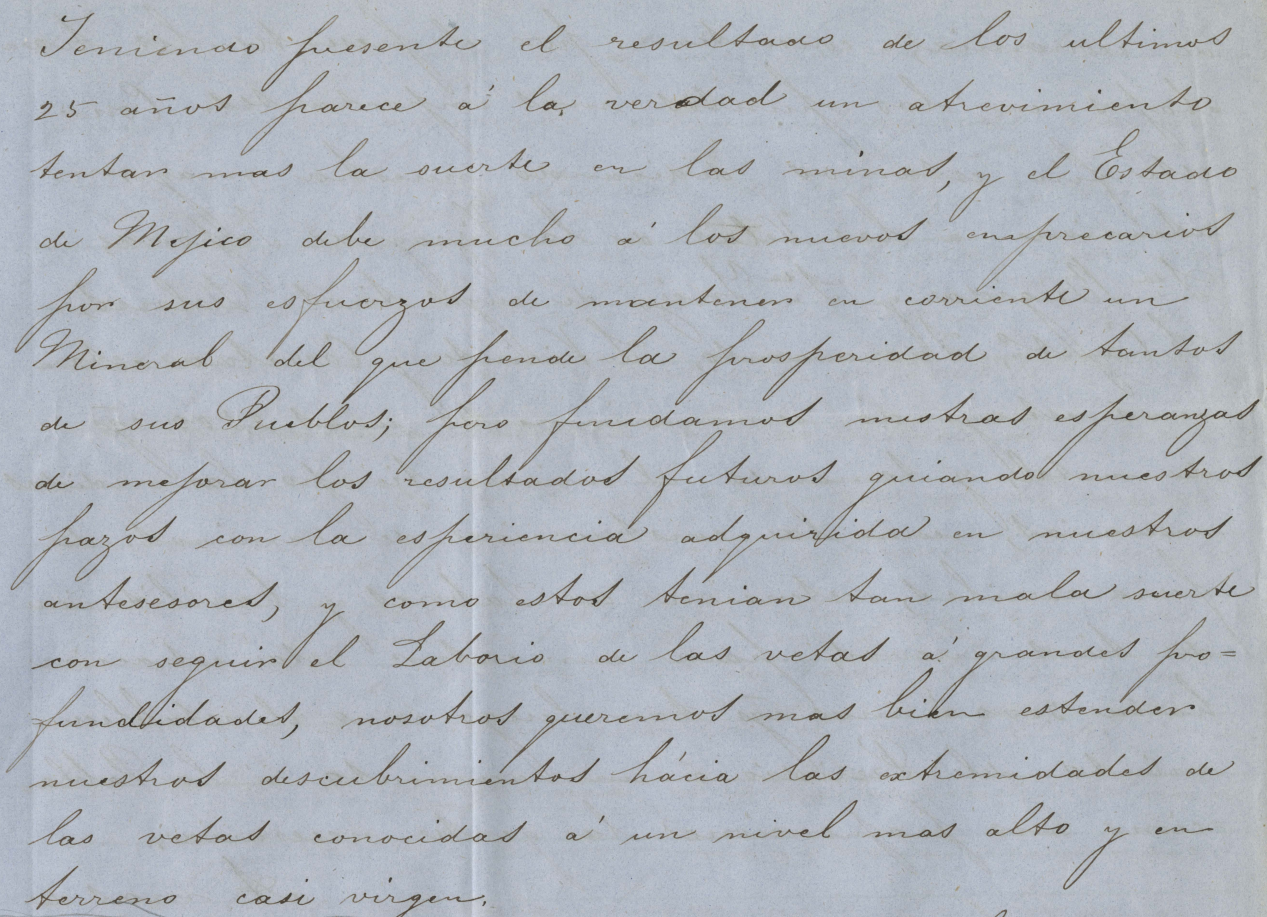 Teniendo presente el resultado de los ultimos
25 años parece á la verdad un atrevimiento
tentar mas la suerte en las minas, y el Estado
de Mejico debe mucho á los nuevos enprecarios
por sus esfuerzos de mantener en corriente un
Mineral del que pende la prosperidad de tantos
de sus Pueblos; pero fundamos nuestras esperanzas
de mejorar los resultados futuros guiando nuestros
pazos con la esperiencia adquirida en nuestros
antesesores, y como estos tenian tan mala suerte
con seguir el Laborio de las vetas á grandes pro=
fundidades, nosotros queremos mas bien estender
nuestros descubrimientos hácia las extremidades de
las vetas conocidas á un nivel mas alto y en
terreno casi virgen.